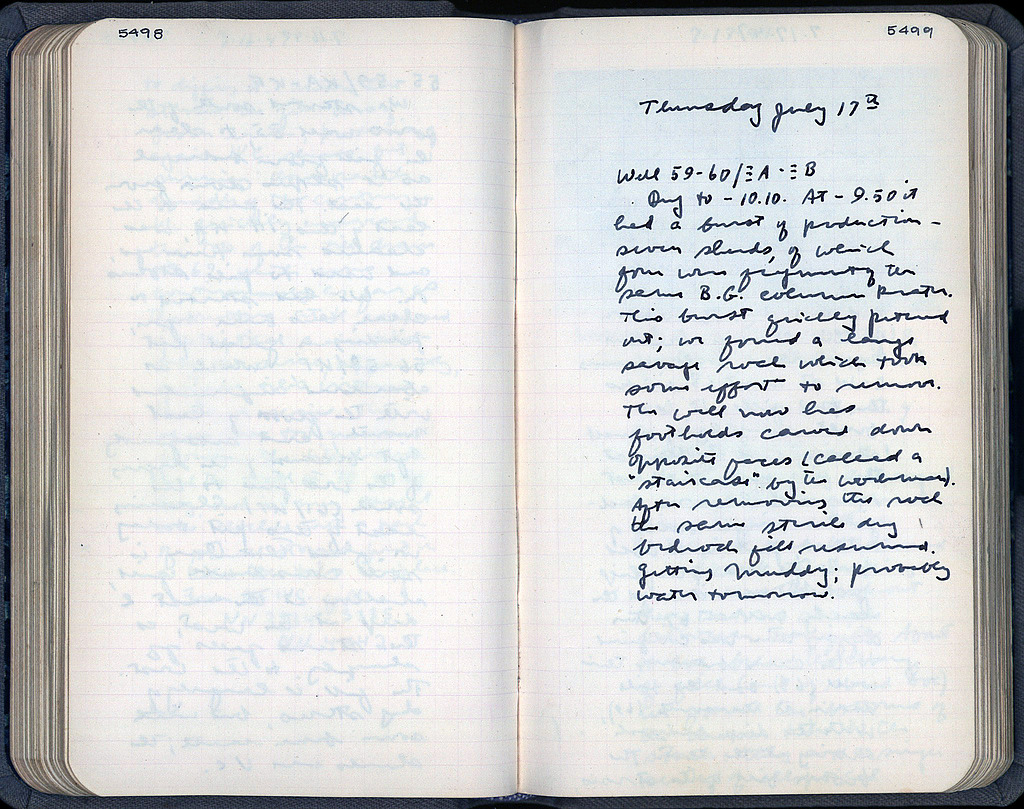 5498
5499
Thursday July 17th
Well 59-60/ΞA-ΞB
Dug to -10.10. At -9.50 it
had a burst of production -
seven sherds, of which
four were fragments of the
same B.G. column krater.
This burst quickly petered
out; we found a large
savage rock which took
some effort to remove.
The well now has
footholds carved down
opposite faces (called a
"staircase" by the workmen).
After removing the rock
the same sterile dug
bedrock fill resumed.
Getting muddy; probably
water tomorrow.